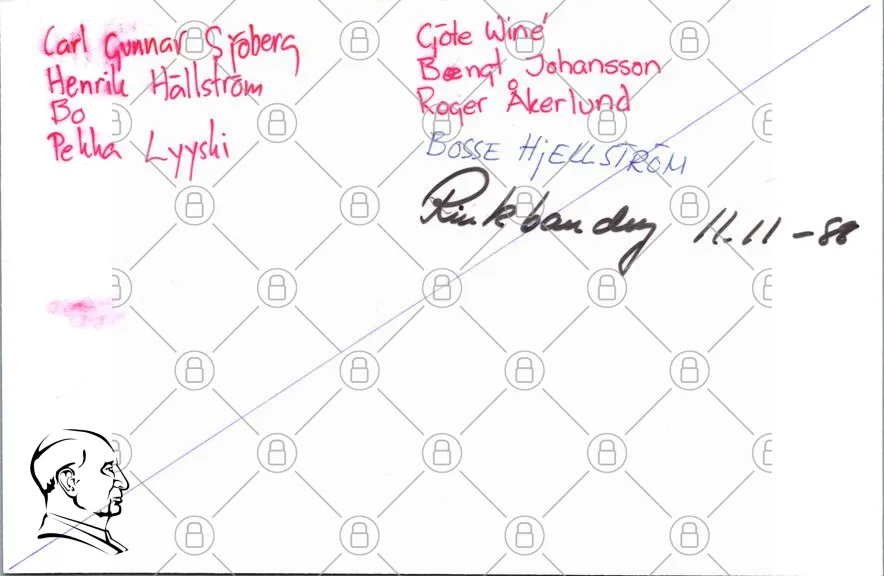 Carl Gunnar Sjöberg
Henrik Hällström
Bo
Pekka Lyyski
Göte Winé
Bengt Johansson
Roger Åkerlund
BOSSE HjELLSTRÖM
Rinkbandy 11.11-88